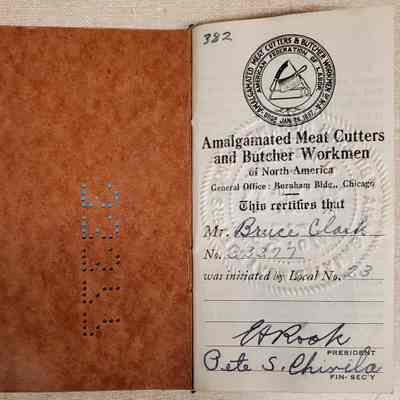 382
AMALGAMATED MEAT CUTTERS & BUTCHER WORKMEN OF N.A.
AMERICAN FEDERATION OF LABOR
ORG. JAN. 26, 1897
Amalgamated Meat Cutters
and Butcher Workmen
of North America
General Office: Burnham Bldg., Chicago
This certifies that
Mr. Bruce Clark
No. 33377
was initiated by Local No. 23
PRESIDENT
Pete S. Chivila
FIN- SEC'Y